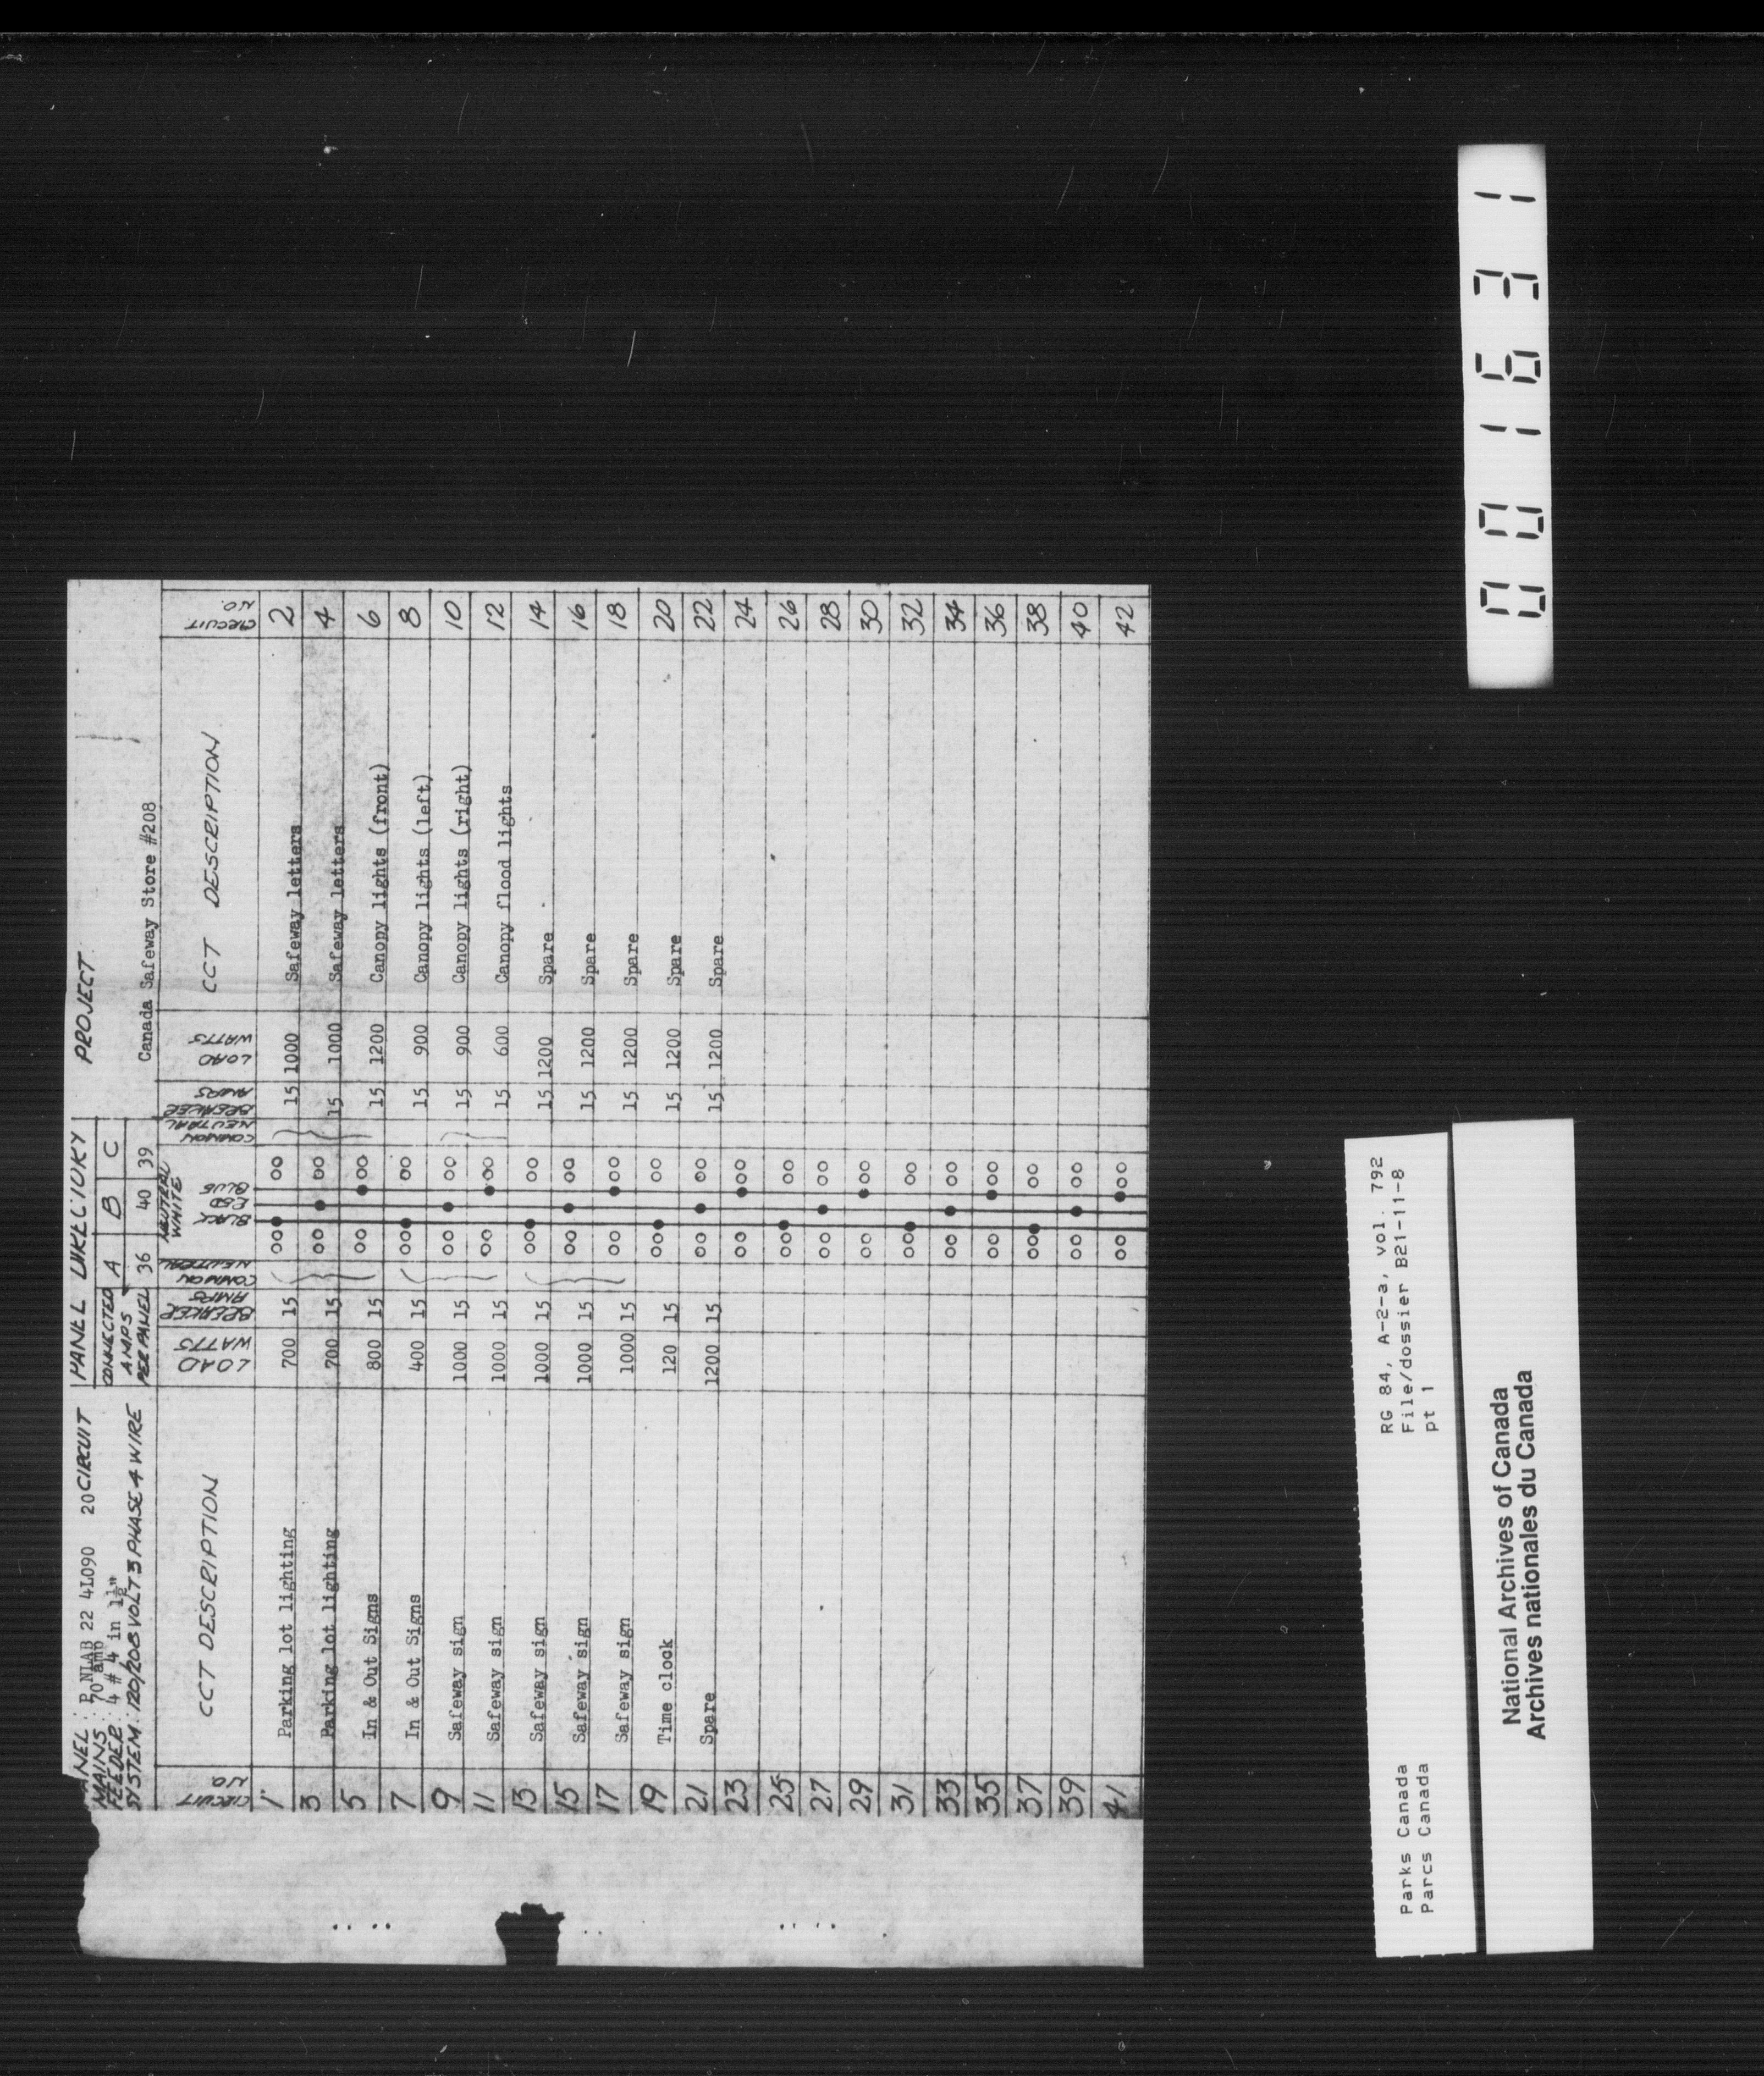 PANEL : P NLAB 22 4L090 20 CIRCUIT
MAINS : 70 amp
FEEDER : 4 # 4 in 1½"
SYSTEM : 120/208 VOLT 3 PHASE 4 WIRE
PANEL DIRECTORY
CONNECTED AMPS PER PANEL
A B C
36 40 39
PROJECT
Canada Safeway Store #208
CIRCUIT NO. CCT DESCRIPTION LOAD WATTS BREAKER AMPS COMMON NEUTRAL BLACK RED BLUE NEUTRAL WHITE COMMON NEUTRAL BREAKER AMPS LOAD WATTS CCT DESCRIPTION CIRCUIT NO.
1 Parking lot lighting 700 15 15 1000 Safeway letters 2
3 Parking lot lighting 700 15 15 1000 Safeway letters 4
5 In & Out Signs 800 15 15 1200 Canopy lights (front) 6
7 In & Out Signs 400 15 15 900 Canopy lights (left) 8
9 Safeway sign 1000 15 15 900 Canopy lights (right) 10
11 Safeway sign 1000 15 15 600 Canopy flood lights 12
13 Safeway sign 1000 15 15 1200 Spare 14
15 Safeway sign 1000 15 15 1200 Spare 16
17 Safeway sign 1000 15 15 1200 Spare 18
19 Time clock 120 15 15 1200 Spare 20
21 Spare 1200 15 15 1200 Spare 22
23 24
25 26
27 28
29 30
31 32
33 34
35 36
37 38
39 40
41 42
Parks Canada RG 84, A-2-a, vol. 792
Parcs Canada File/dossier B21-11-8
pt 1
National Archives of Canada
Archives nationales du Canada
001631